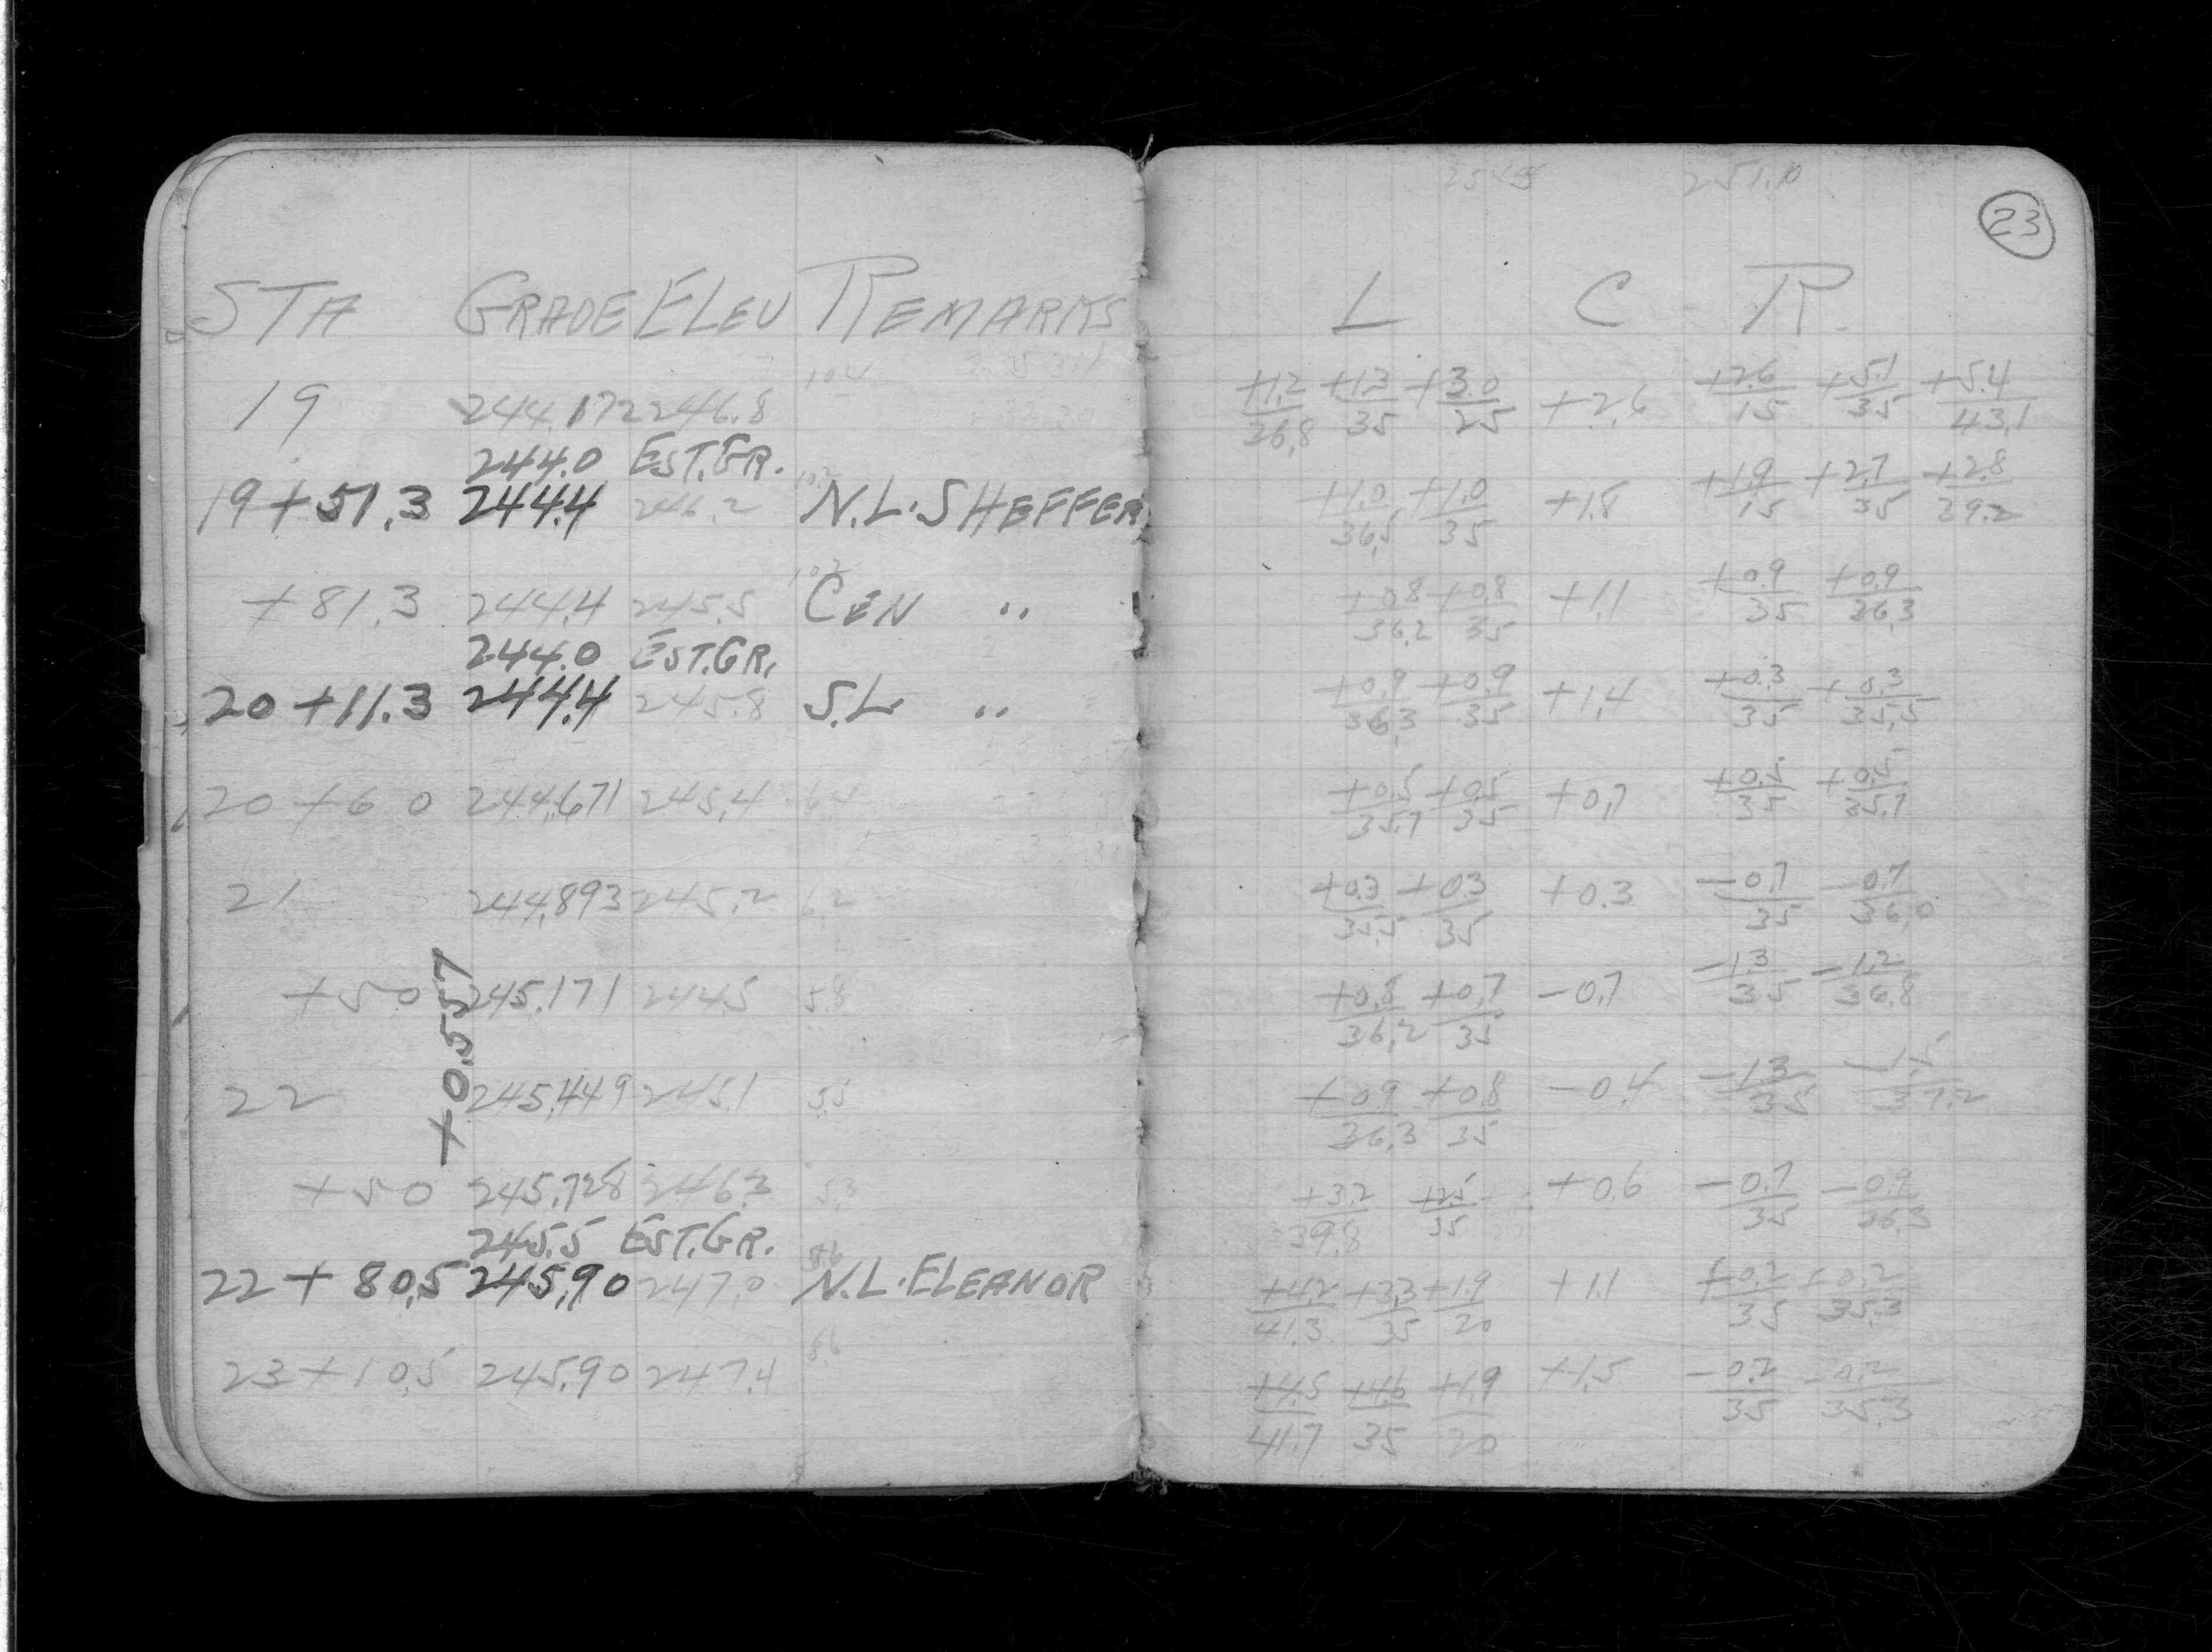 STA GRADE ELEV REMARKS
19 244.172 246.8 10.4
244.0 EST.GR.
19+51.3 244.4 246.2 N.L. SHEFFER
+81.3 244.4 245.5 CEN "
244.0 EST.GR.
20+11.3 244.4 245.8 S.L. "
20+60 244.671 245.4 6.4
21 244.893 245.2 6.2
+50 245.171 244.5 5.8
+0.557
22 245.449 245.1 5.5
+50 245.728 246.3 5.3
245.5 EST.GR.
22+80.5 245.90 247.0 N.L. ELEANOR
23+10.5 245.90 247.4 8.6
251.10
23
L C R
+1.2/36.8 +1.3/35 +3.0/25 +2.6 +2.6/15 +5.1/35 +5.4/43.1
+1.0/36.5 +1.0/35 +1.8 +1.9/15 +2.7/35 +2.8/39.2
+0.8/36.2 +0.8/35 +1.1 +0.9/35 +0.9/36.3
+0.9/36.3 +0.9/35 +1.4 +0.3/35 +0.3/35.5
+0.5/35.7 +0.5/35 +0.7 +0.5/35 +0.5/35.7
+0.3/35.5 +0.3/35 +0.3 -0.7/35 -0.7/36.0
+0.8/36.2 +0.7/35 -0.7 -1.3/35 -1.2/36.8
+0.9/36.3 +0.8/35 -0.4 -1.3/35 -1.5/37.2
+3.2/39.8 +2.5/35 +0.6 -0.7/35 -0.9/36.3
+4.2/41.3 +3.3/35 +1.9/20 +1.1 +0.2/35 +0.2/35.3
+4.5/41.7 +4.6/35 +1.9/20 +1.5 -0.2/35 -0.2/35.3